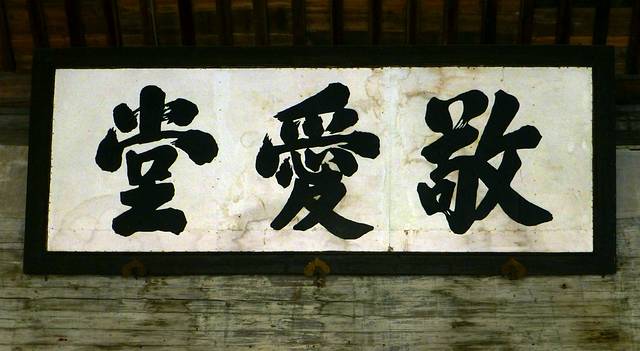 敬愛堂